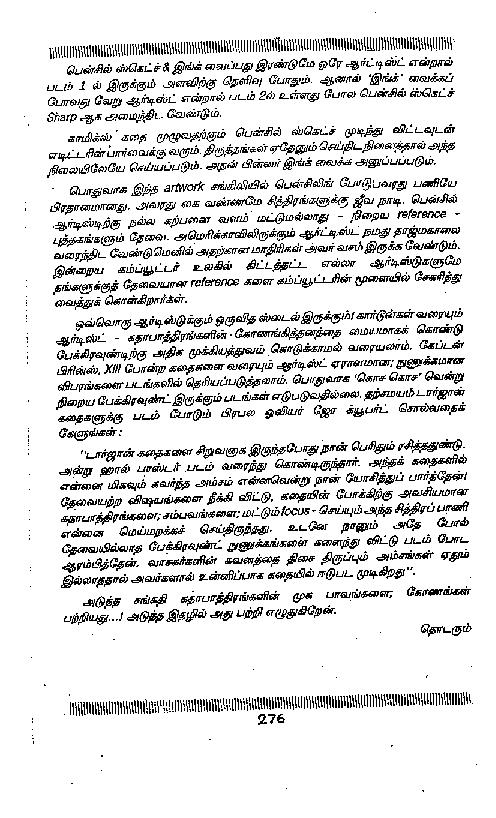 பென்சில் ஸ்கெட்ச் & இங்க் வைப்பது இரண்டுமே ஒரே ஆர்ட்டிஸ்ட் என்றால்
படம் 1 ல் இருக்கும் அளவிற்கு தெளிவு போதும். ஆனால் 'இங்க்' வைக்கப்
போவது வேறு ஆர்டிஸ்ட் என்றால் படம் 2ல் உள்ளது போல பென்சில் ஸ்கெட்ச்
Sharp ஆக அமைந்திட வேண்டும்.
காமிக்ஸ் கதை முழுவதற்கும் பென்சில் ஸ்கெட்ச் முடிந்து விட்டவுடன்
எடிட்டரின் பார்வைக்கு வரும். திருத்தங்கள் ஏதேனும் செய்திட நினைத்தால் அந்த
நிலையிலேயே செய்யப்படும். அதன் பின்னர் இங்க் வைக்க அனுப்பப்படும்.
பொதுவாக இந்த artwork சங்கிலியில் பென்சிலிங் போடுபவரது பணியே
பிரதானமானது. அவரது கை வண்ணமே சித்திரங்களுக்கு ஜீவ நாடி. பென்சில்
ஆர்டிஸ்டிற்கு நல்ல கற்பனை வளம் மட்டுமல்லாது - நிறைய reference -
புத்தகங்களும் தேவை. அமெரிக்காவிலிருக்கும் ஆர்டிஸ்ட் நமது தாஜ்மகாலை
வரைந்திட வேண்டுமெனில் அதற்கான மாதிரிகள் அவர் வசம் இருக்க வேண்டும்.
இன்றைய கம்ப்யூட்டர் உலகில் கிட்டத்தட்ட எல்லா ஆர்டிஸ்டுகளுமே
தங்களுக்குத் தேவையான reference களை கம்ப்யூட்டரின் மூளையில் சேகரித்து
வைத்துக் கொள்கிறார்கள்.
ஒவ்வொரு ஆர்டிஸ்டுக்கும் ஒருவித ஸ்டைல் இருக்கும்! கார்டூன்கள் வரையும்
ஆர்டிஸ்ட் - கதாபாத்திரங்களின் கோணங்கித்தனத்தை மையமாகக் கொண்டு
பேக்கிரவுண்டிற்கு அதிக முக்கியத்துவம் கொடுக்காமல் வரையலாம். கேப்டன்
பிரின்ஸ், XIII போன்ற கதைகளை வரையும் ஆர்டிஸ்ட் ஏராளமான; நுணுக்கமான
விபரங்களை படங்களில் தெரியப்படுத்தலாம். பொதுவாக 'கொச கொச' வென்று
நிறைய பேக்கிரவுண்ட் இருக்கும் படங்கள் எடுபடுவதில்லை. தற்சமயம் டார்ஜான்
கதைகளுக்கு படம் போடும் பிரபல ஓவியர் ஜோ க்யூபர்ட் சொல்வதைக்
கேளுங்கள் :
"டார்ஜான் கதைகளை சிறுவனாக இருந்தபோது நான் பெரிதும் ரசித்ததுண்டு.
அன்று ஹால் பாஸ்டர் படம் வரைந்து கொண்டிருந்தார். அந்தக் கதைகளில்
என்னை மிகவும் கவர்ந்த அம்சம் என்னவென்று நான் யோசித்துப் பார்த்தேன்!
தேவையற்ற விஷயங்களை நீக்கி விட்டு, கதையின் போக்கிற்கு அவசியமான
கதாபாத்திரங்களை; சம்பவங்களை; மட்டும் focus - செய்யும் அந்த சித்திரப் பாணி
என்னை மெய்மறக்கச் செய்திருந்தது. உடனே நானும் அதே போல்
தேவையில்லாத பேக்கிரவுண்ட் நுணுக்கங்களை களைந்து விட்டு படம் போட
ஆரம்பித்தேன். வாசகர்களின் கவனத்தை திசை திருப்பும் அம்சங்கள் ஏதும்
இல்லாததால் அவர்களால் உன்னிப்பாக கதையில் ஈடுபட முடிகிறது".
அடுத்த சங்கதி கதாபாத்திரங்களின் முக பாவங்களை; கோணங்கள்
பற்றியது...! அடுத்த இதழில் அது பற்றி எழுதுகிறேன்.
தொடரும்
276